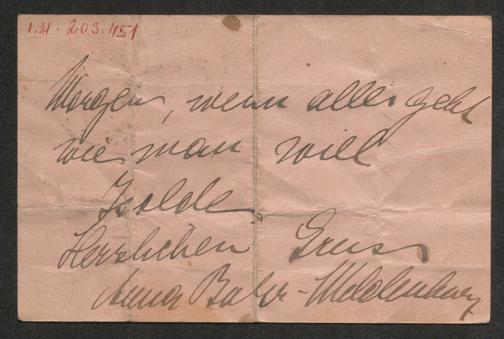 I.N. 203.151
Morgen, wenn alles geht
wie man will
Isolde
Herzlichen Gruss
Anna Bahr-Mildenburg